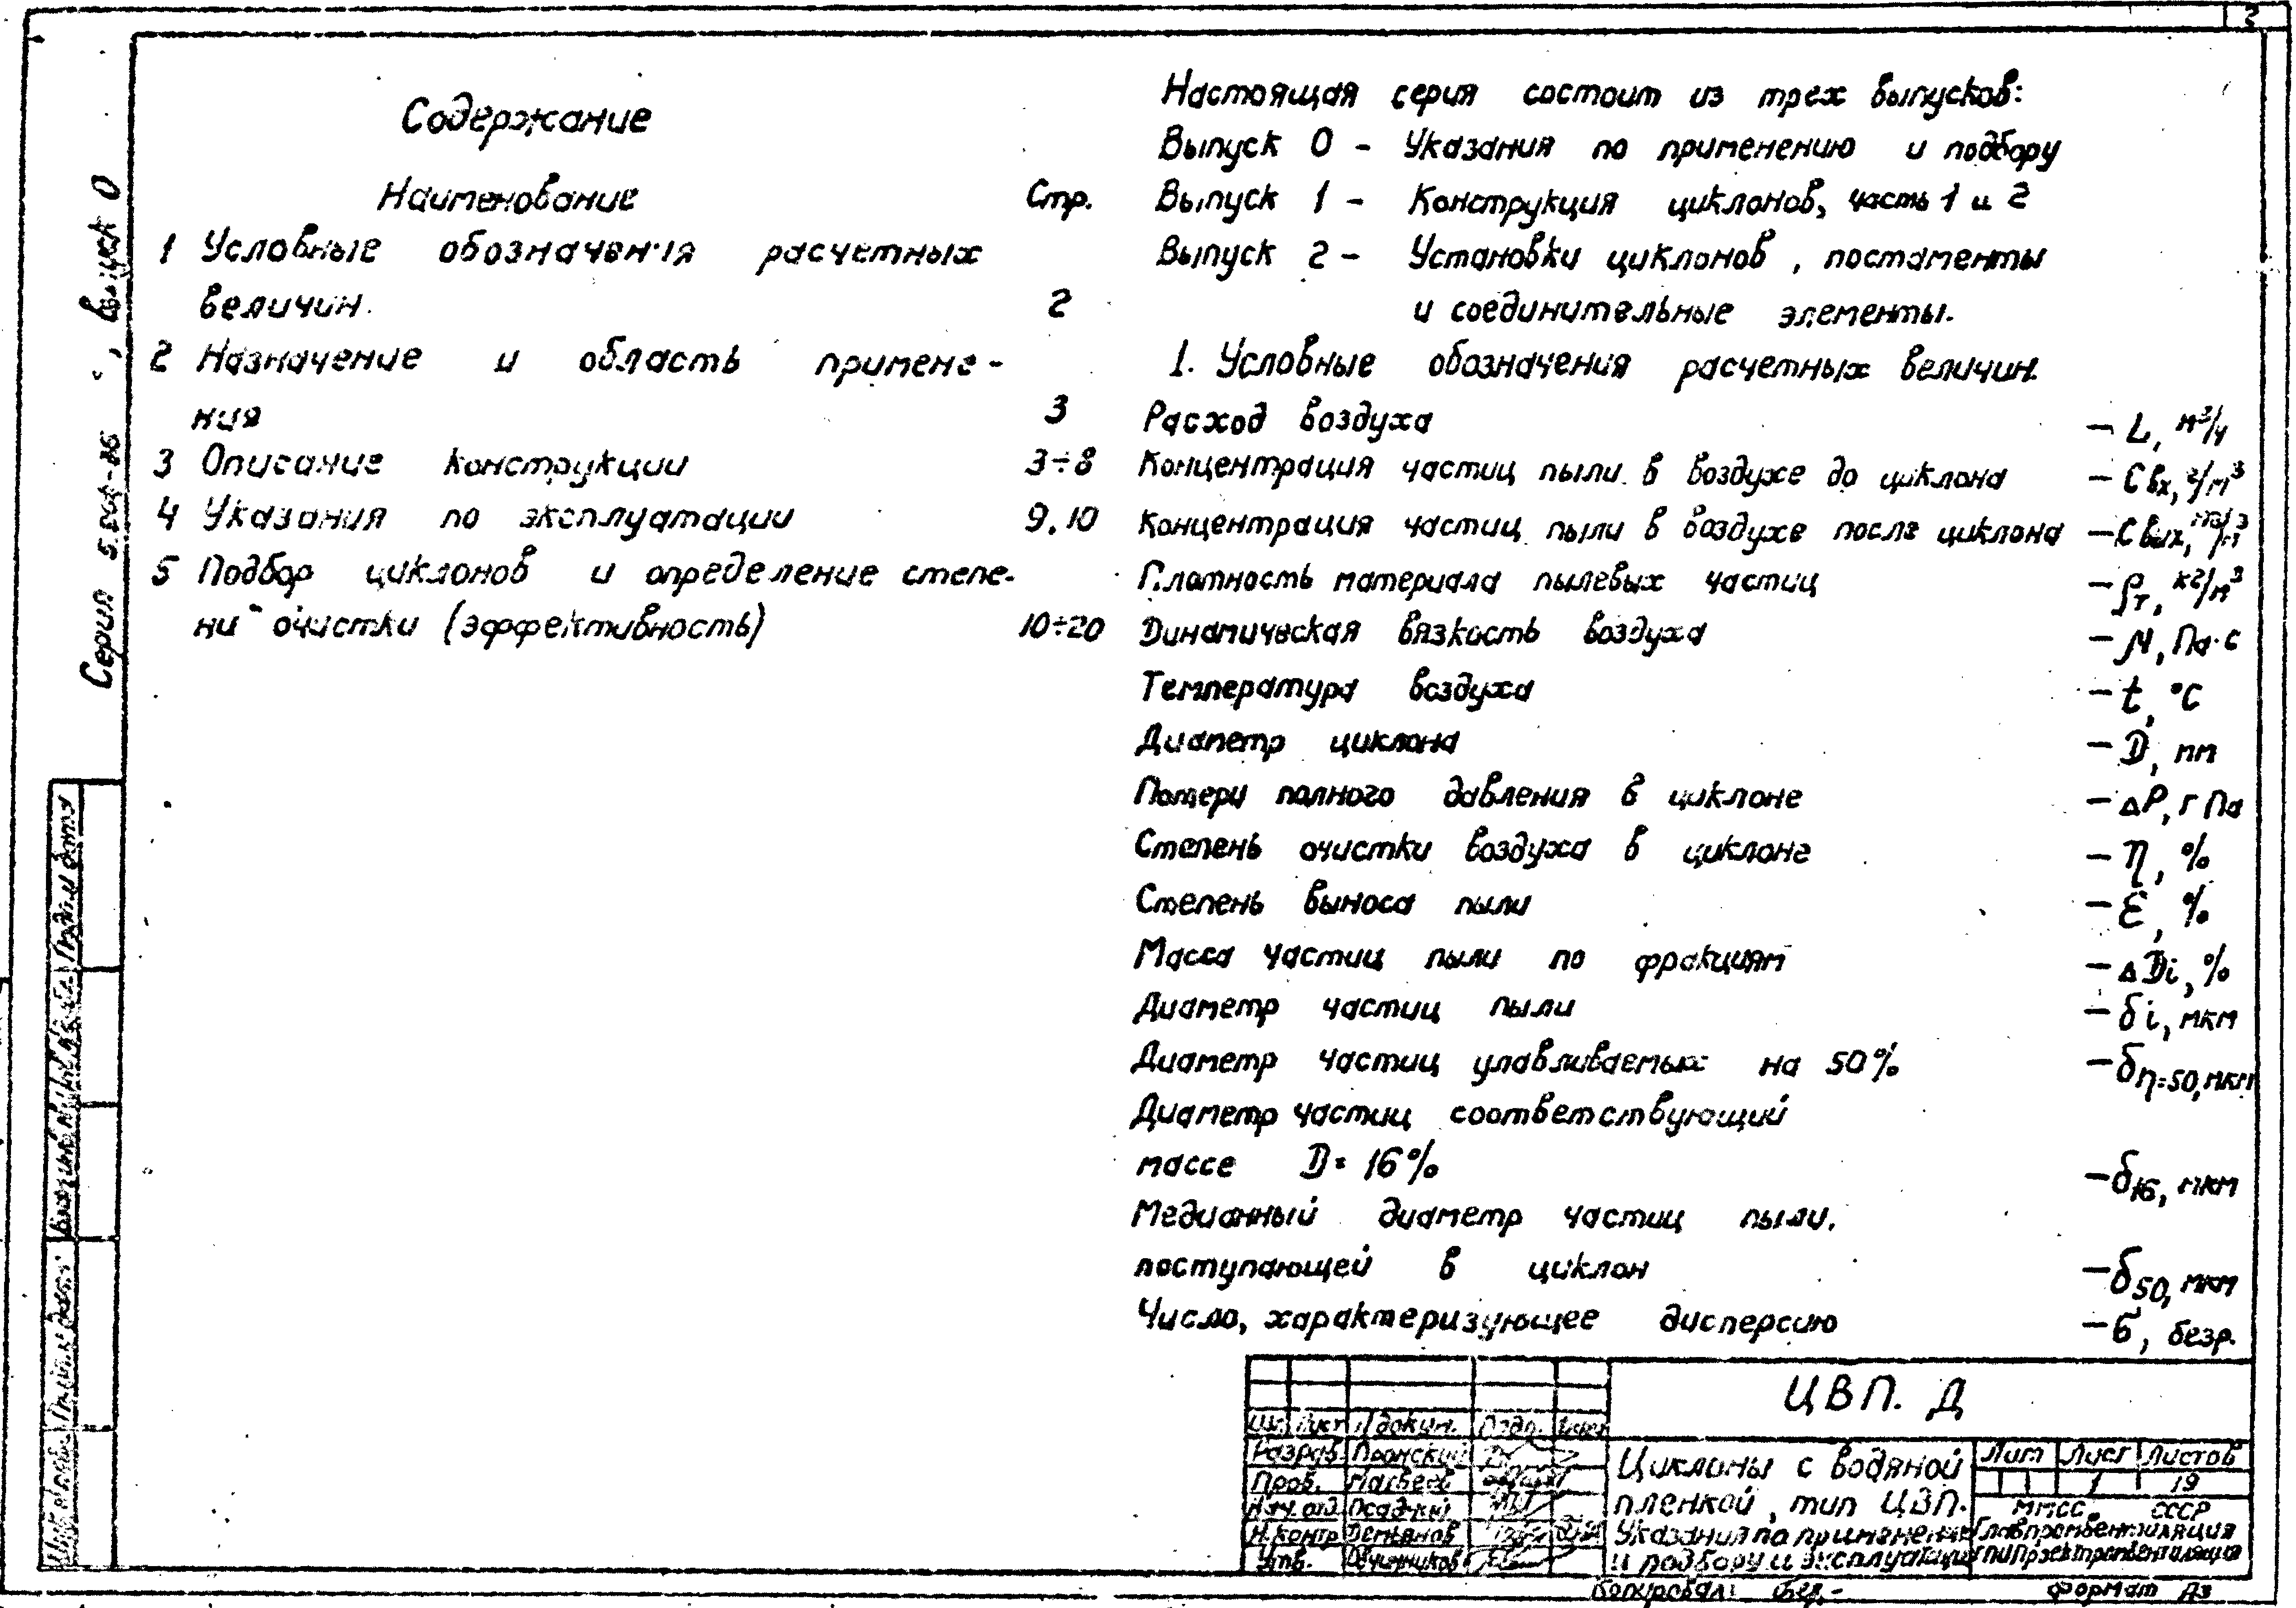 2
Содержание
Наименование Стр.
1 Условные обозначения расчетных
величин. 2
2 Назначение и область примене-
ния 3
3 Описание конструкции 3÷8
4 Указания по эксплуатации 9,10
5 Подбор циклонов и определение степе-
ни очистки (эффективность) 10÷20
Настоящая серия состоит из трех выпусков:
Выпуск 0 - Указания по применению и подбору
Выпуск 1 - Конструкция циклонов, часть 1 и 2
Выпуск 2 - Установки циклонов, постаменты
и соединительные элементы.
1. Условные обозначения расчетных величин.
Расход воздуха - L, м³/ч
Концентрация частиц пыли в воздухе до циклона - Cвх, г/м³
Концентрация частиц пыли в воздухе после циклона - Cвых, мг/м³
Плотность материала пылевых частиц - ρт, кг/м³
Динамическая вязкость воздуха - μ, Па·с
Температура воздуха - t, °C
Диаметр циклона - D, мм
Потери полного давления в циклоне - ΔP, гПа
Степень очистки воздуха в циклоне - η, %
Степень выноса пыли - ε, %
Масса частиц пыли по фракциям - ΔDi, %
Диаметр частиц пыли - δi, мкм
Диаметр частиц улавливаемых на 50% - δη=50, мкм
Диаметр частиц соответствующий
массе D=16% - δ16, мкм
Медианный диаметр частиц пыли,
поступающей в циклон - δ50, мкм
Число, характеризующее дисперсию - б, безр.
Серия , выпуск 0
ЦВП. Д
Изм. Лист № докум. Подп. Дата
Разраб. Пронский
Пров. Матвеев
Нач. отд. Осадчий
Н.контр. Демьянов
Утв. Овчинников
Циклоны с водяной
пленкой, тип ЦВП.
Указания по применению
и подбору и эксплуатации
Лит Лист Листов
1 19
ММСС СССР
Главпромвентиляция
ГПИ Проектпромвентиляция
Копировал: Формат А3